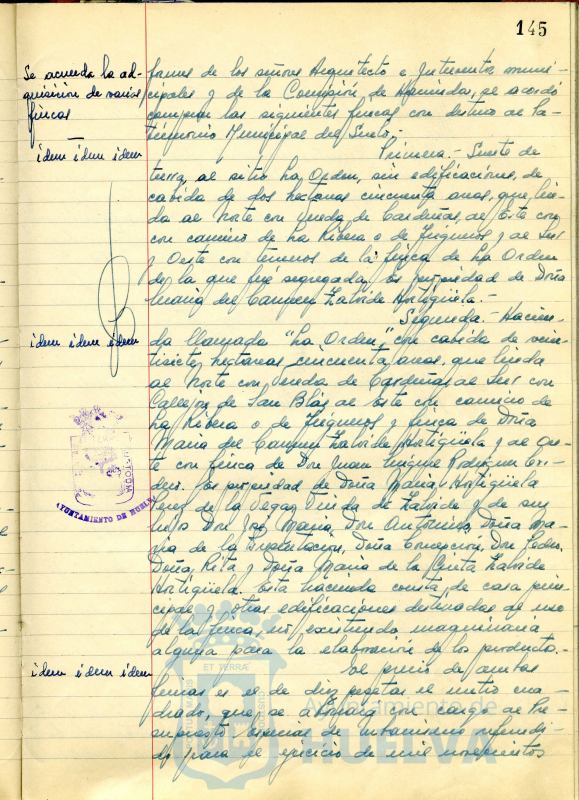 145
Se acuerda la ad-
quisición de varias
fincas
formes de los señores Arquitecto e Interventor muni-
cipales y de la Comisión de Hacienda, se acordó
comprar las siguientes fincas con destino al Pa-
trimonio Municipal del Suelo.-
idem idem idem
Primera.- Suerte de
tierra, al sitio La Orden, sin edificaciones, de
cabida de dos hectareas cincuenta areas, que lin-
da al Norte con vereda de Cardeñas, al Este con
con camino de La Ribera o de Trigueros y al Sur
y Oeste con terrenos de la finca de La Orden
de la que fué segregada. Es propiedad de Doña
Maria del Carmen Zalvide Hortigüela.-
Segunda.- Hacien-
idem idem idem
da llamada "La Orden" con cabida de vein-
tisiete hectareas cincuenta areas, que linda
al Norte con vereda de Cardeñas, al Sur con
Callejón de San Blás, al Este con camino de
La Ribera o de Trigueros y finca de Doña
Maria del Carmen Zalvide Hortigüela y al Oes-
te con finca de Don Juan Rodriguez
Es propiedad de Doña Maria Hortigüela
Perez de la Vega, Viuda de Zalvide y de sus
hijos Don José Maria, Don Antonino, Doña Ma-
ria de la Presentación, Doña Concepción, Don Pedro,
Doña Rita y Doña Maria de la Cinta Zalvide
Hortigüela. Esta hacienda consta de casa prin-
cipal y otras edificaciones destinadas al uso
de la finca, no existiendo maquinaria
alguna para la elaboración de los productos.-
idem idem idem
El precio de ambas
fincas es el de diez pesetas el metro cua-
drado, que se abonará con cargo al Pre-
supuesto especial de urbanismo refundi-
do para el ejercicio de mil novecientos
AYUNTAMIENTO DE HUELVA
ET TERRAE
Ayuntamiento de
HUELVA